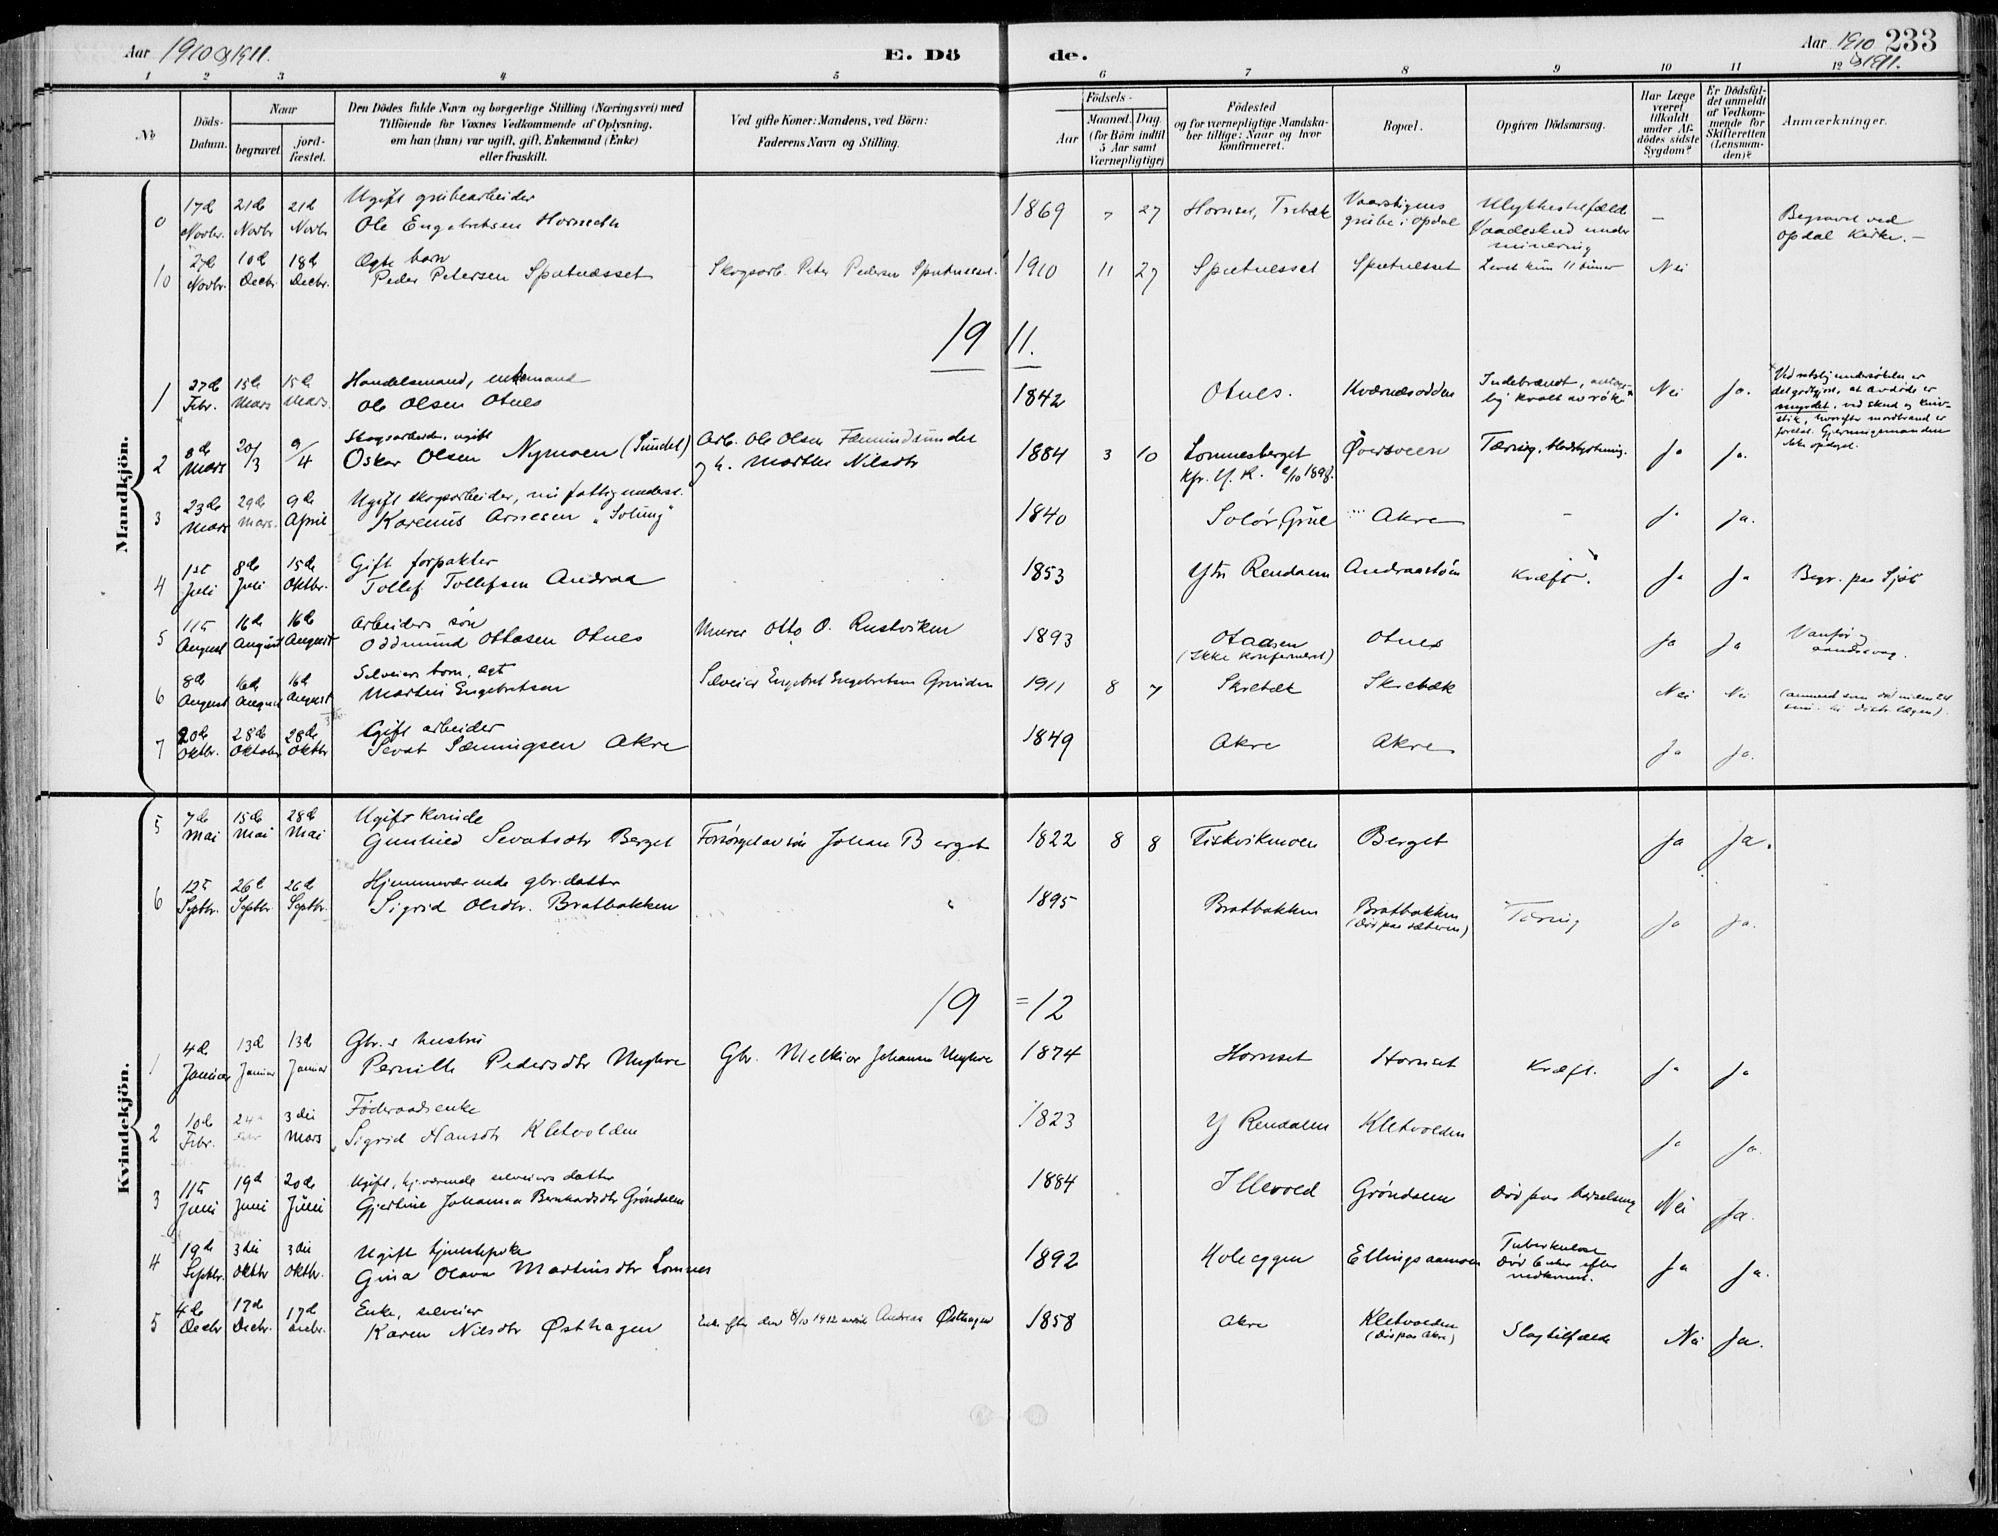 Aar 1910 & 1911.
E. Dö de.
Aar 1910 & 1911.
233
1 2 3 4 5 6 7 8 9 10 11 12
No
Döds-Datum.
Naar
begravet
jord-fæstet.
Den Dödes fulde Navn og borgerlige Stilling (Næringsvei) med
Tilföiende for Voxnes Vedkommende af Oplysning,
om han (hun) var ugift, gift, Enkemand (Enke)
eller fraskilt.
Ved gifte Koner: Mandens, ved Börn:
Faderens Navn og Stilling.
Födsels-
Aar
Maaned. Dag
(for Börn indtil
5 Aar samt
Værnepligtige)
Födested
og for værnepligtige Mandska-
ber tillige: Naar og hvor
konfirmeret.
Bopæl.
Opgiven Dödsaarsag.
Har Læge
været
tilkaldt
under Af-
dödes sidste
Sygdom?
Er Dödsfal-
det anmeldt
af Vedkom-
mende for
Skifteretten
(Lensman-
den)?
Anmærkninger.
Mandkjön.
17de 21de 21de Ugift grubearbeider
Novbr. Novbr Novbr Ole Engebretsen Hornseth 1869 27 Hornset, grube i Opdal Vaadeskud under minering
Begravet ved
Opdal Kirke. —
10 27 Novbr. 10de Decbr. 18de Decbr. Ægte barn
Peder Petersen Sputnæsset Skogsarb. Peter Pedersen Sputnæsset. 1910 11 27 Sputnesset Sputnesset Levet kun 11 timer Nei
19 11.
1 27de Febr. 15de Mars 15de Mars. Handelsmand, enkemand
Ole Olsen Otnes 1842 Otnes. Kværnæsodden Indebrændt, kvalt av røk Nei Ja.
det godtgjort, at avdøde er
myrdet, ved skud og kniv-
stik, hvorefter mordbrand er
Gjerningsmanden
ikke opdaget.
2 8de Mars 20/3 9/4 Skogsarbeider, ugift
Oskar Olsen Nymoen (Sundet) Arb. Ole Olsen Femundsundet
og h. Marthe Nilsdtr 1884 3 10 Lomnesberget Øversveen Tæring, Ja Ja.
3 23de Mars 29de Mars. 9de April Ugift skogsarbeider,
Karenus Arnesen „Solung" 1840 Solør, Grue Akre Ja Ja.
4 1ste Juli 8de Juli 15de Oktbr. Gift forpakter
Tollef Tollefsen Andraa 1853 Ytr Rendalen Andraastøm Kræft. Ja Ja Begr. paa Sjøli
5 11te August 16de August 16de August Arbeiders søn
Oddmund Ottosen Otnes Murer Otto O. Rustviken 1893 Otaasen Otnes Ja Ja Vanfør og
(Ikke konfirmert) aandssvag.
6 8de August 16de August 16de August Selveiers barn, ægt
Martin Engebretsen Selveier Engebret Engebretsen 1911 8 7 Skrebæk Skrebæk Nei Nei
7 20de Oktbr. 28de Oktober 28de Oktbr Gift arbeider
Sevat Sæmingsen Akre 1849 Akre Akre Ja Ja.
Kvindekjön.
5 7de Mai 15de Mai 28de Mai Ugift kvinde
Gunhild Sevatsdtr Berget Forsørget av søn Johan Berget 1822 8 8 Fiskvikmoen Berget Ja Ja.
6 12te Septbr. 26de Septbr. 26de Septbr. Hjemmeværende gbr. datter
Sigrid Olsdtr. Bratbakken 1895 Bratbakken Bratbakken Tæring Ja Ja.
(død paa sæteren)
19 = 12
1 4de Januar 13de Januar 13de Januar Gbr.s hustru
Pernille Pedersdtr Myhre Gbr. Melkior Johansen Myhre 1874 Hornset Hornset Kræft. Ja Ja
2 10de Febr. 24 3die Mars Føderaadsenke
Sigrid Hansdtr Kletvolden 1823 Y Rendalen Kletvolden Ja Ja.
3 11te Juni 19de Juni 20de Juni Ugift, hj.værende selveiers datter
Gjertine Johanna Bernhardsdtr Grøndalen 1884 Illevold Grøndalen Død paa Nei Ja.
4 19de Septbr. 3die Oktbr 3die Oktbr. Ugift tjenestepike
Gina Olava Martinsdtr Lomnes 1892 Holeggen Ellingsaamoen Tuberkulose Ja Ja.
5 4de Decbr 17de Decbr. 17de Decbr. Enke, selveier
Karen Nilsdtr Østhagen Enke efter den 8/10 1912 avdøde Andreas Østhagen 1858 Akre Kletvolden Slagtilfælde Nei Ja.
(Død paa Akre)